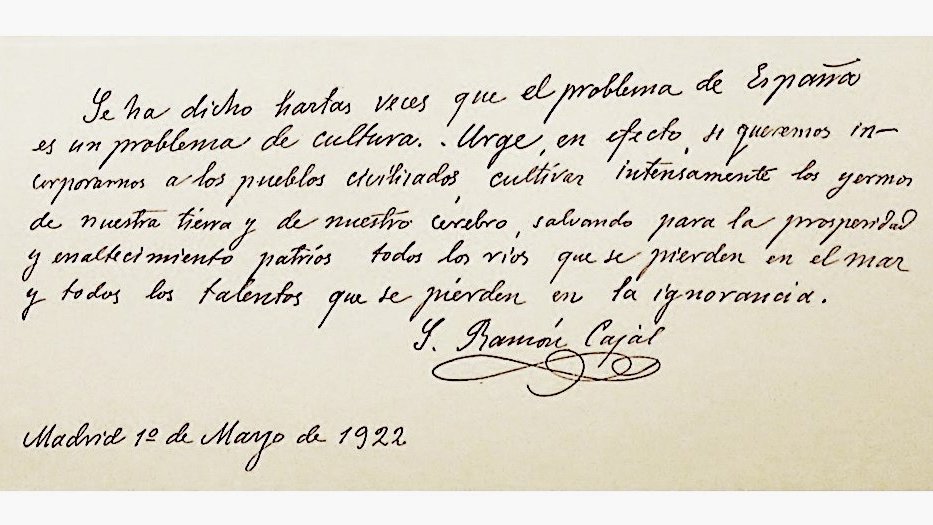 Se ha dicho hartas veces que el problema de España
es un problema de cultura. . Urge, en efecto, si queremos in-
corporarnos a los pueblos civilizados, cultivar intensamente los yermos
de nuestra tierra y de nuestro cerebro, salvando para la prosperidad
y enaltecimiento patrios todos los rios que se pierden en el mar
y todos los talentos que se pierden en la ignorancia.
S. Ramón Cajal
Madrid 1º de Mayo de 1922